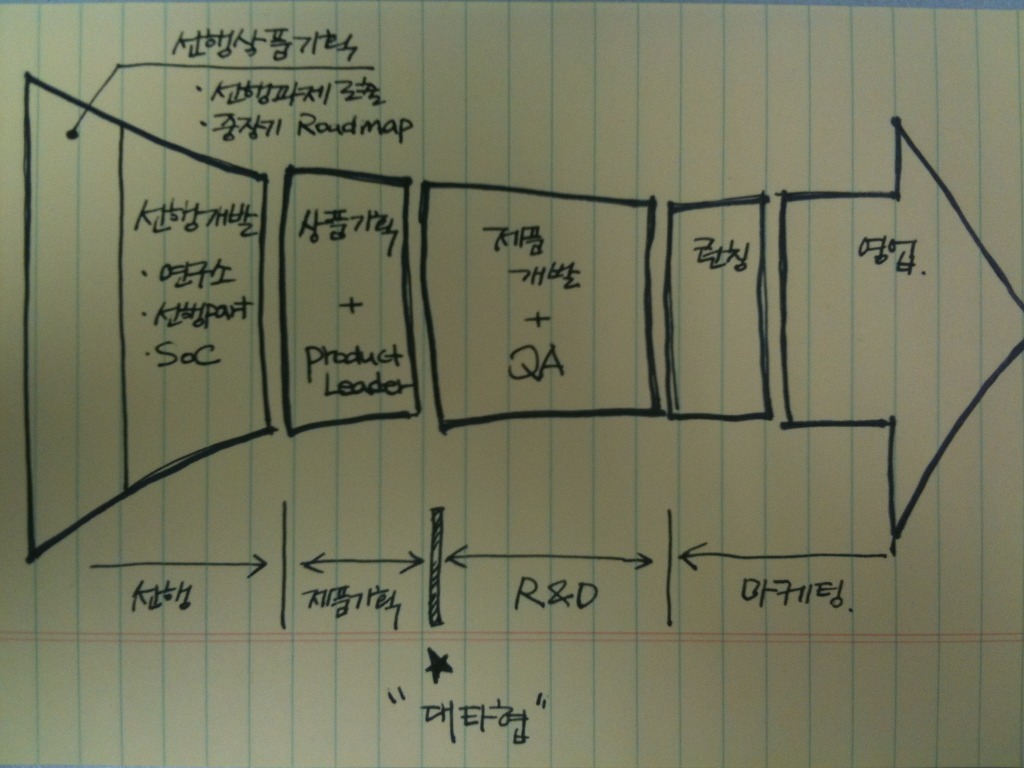 선행상품기획
· 선행과제 도출
· 중장기 Roadmap
선행개발
· 연구소
· 선행part
· SoC
상품기획
+
Product
Leader
제품
개발
+
QA
런칭
영업.
선행
제품기획
R&D
마케팅.
★